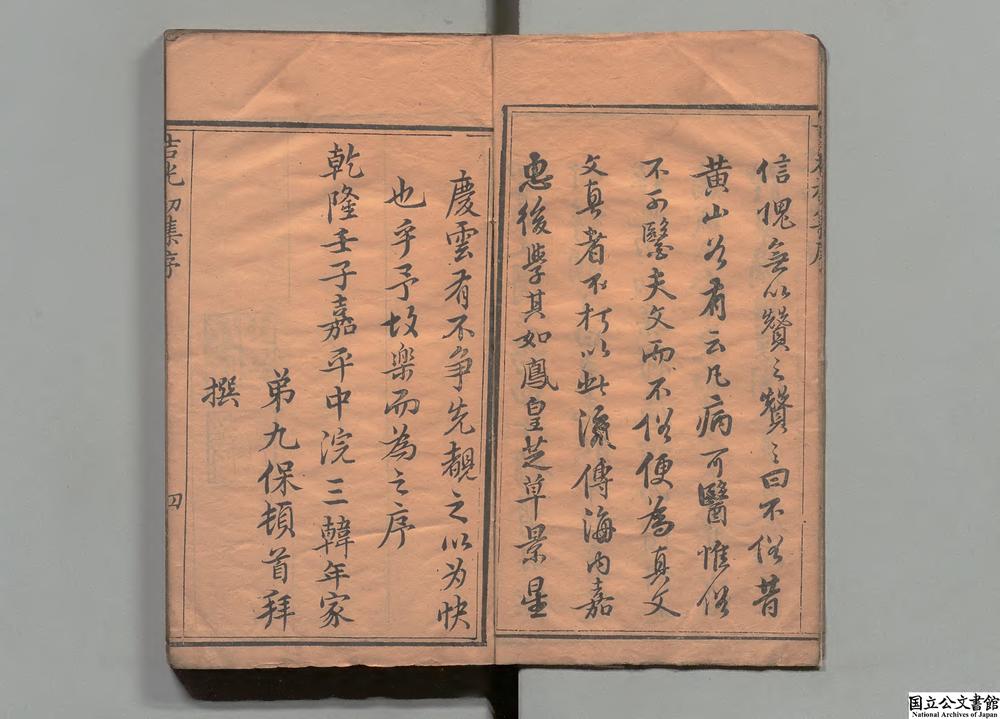 信愧無以贊之贊之曰不俗昔
黄山谷有云凡病可醫惟俗
不可醫夫文而不俗便為真文
文真者不朽以此流傳海内嘉
惠後學其如鳳皇芝草景星
慶雲有不爭先覩之以为快
也乎予故樂而為之序
乾隆壬子嘉平中浣三韓年家
弟九保頓首拜
撰
吉光初集序
四
国立公文書館
National Archives of Japan